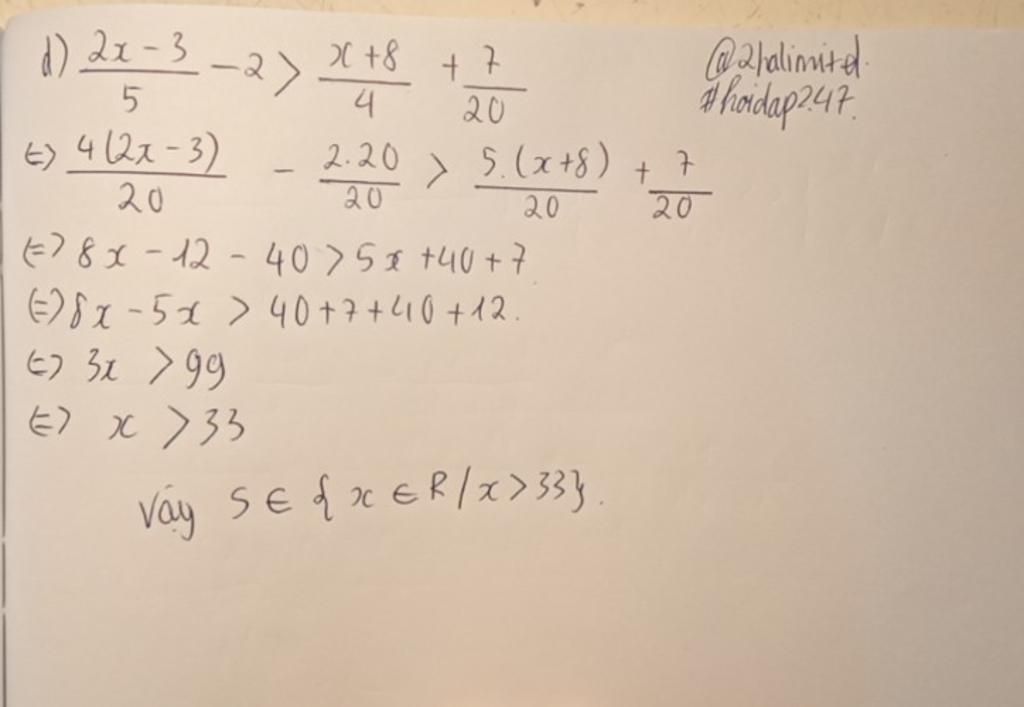 d) \frac{2x-3}{5} - 2 > \frac{x+8}{4} + \frac{7}{20}
@2halimited.
#hoidap247.
<=> \frac{4(2x-3)}{20} - \frac{2.20}{20} > \frac{5.(x+8)}{20} + \frac{7}{20}
<=> 8x - 12 - 40 > 5x + 40 + 7
<=> 8x - 5x > 40 + 7 + 40 + 12.
<=> 3x > 99
<=> x > 33
Vậy S ∈ {x ∈ R / x > 33}.